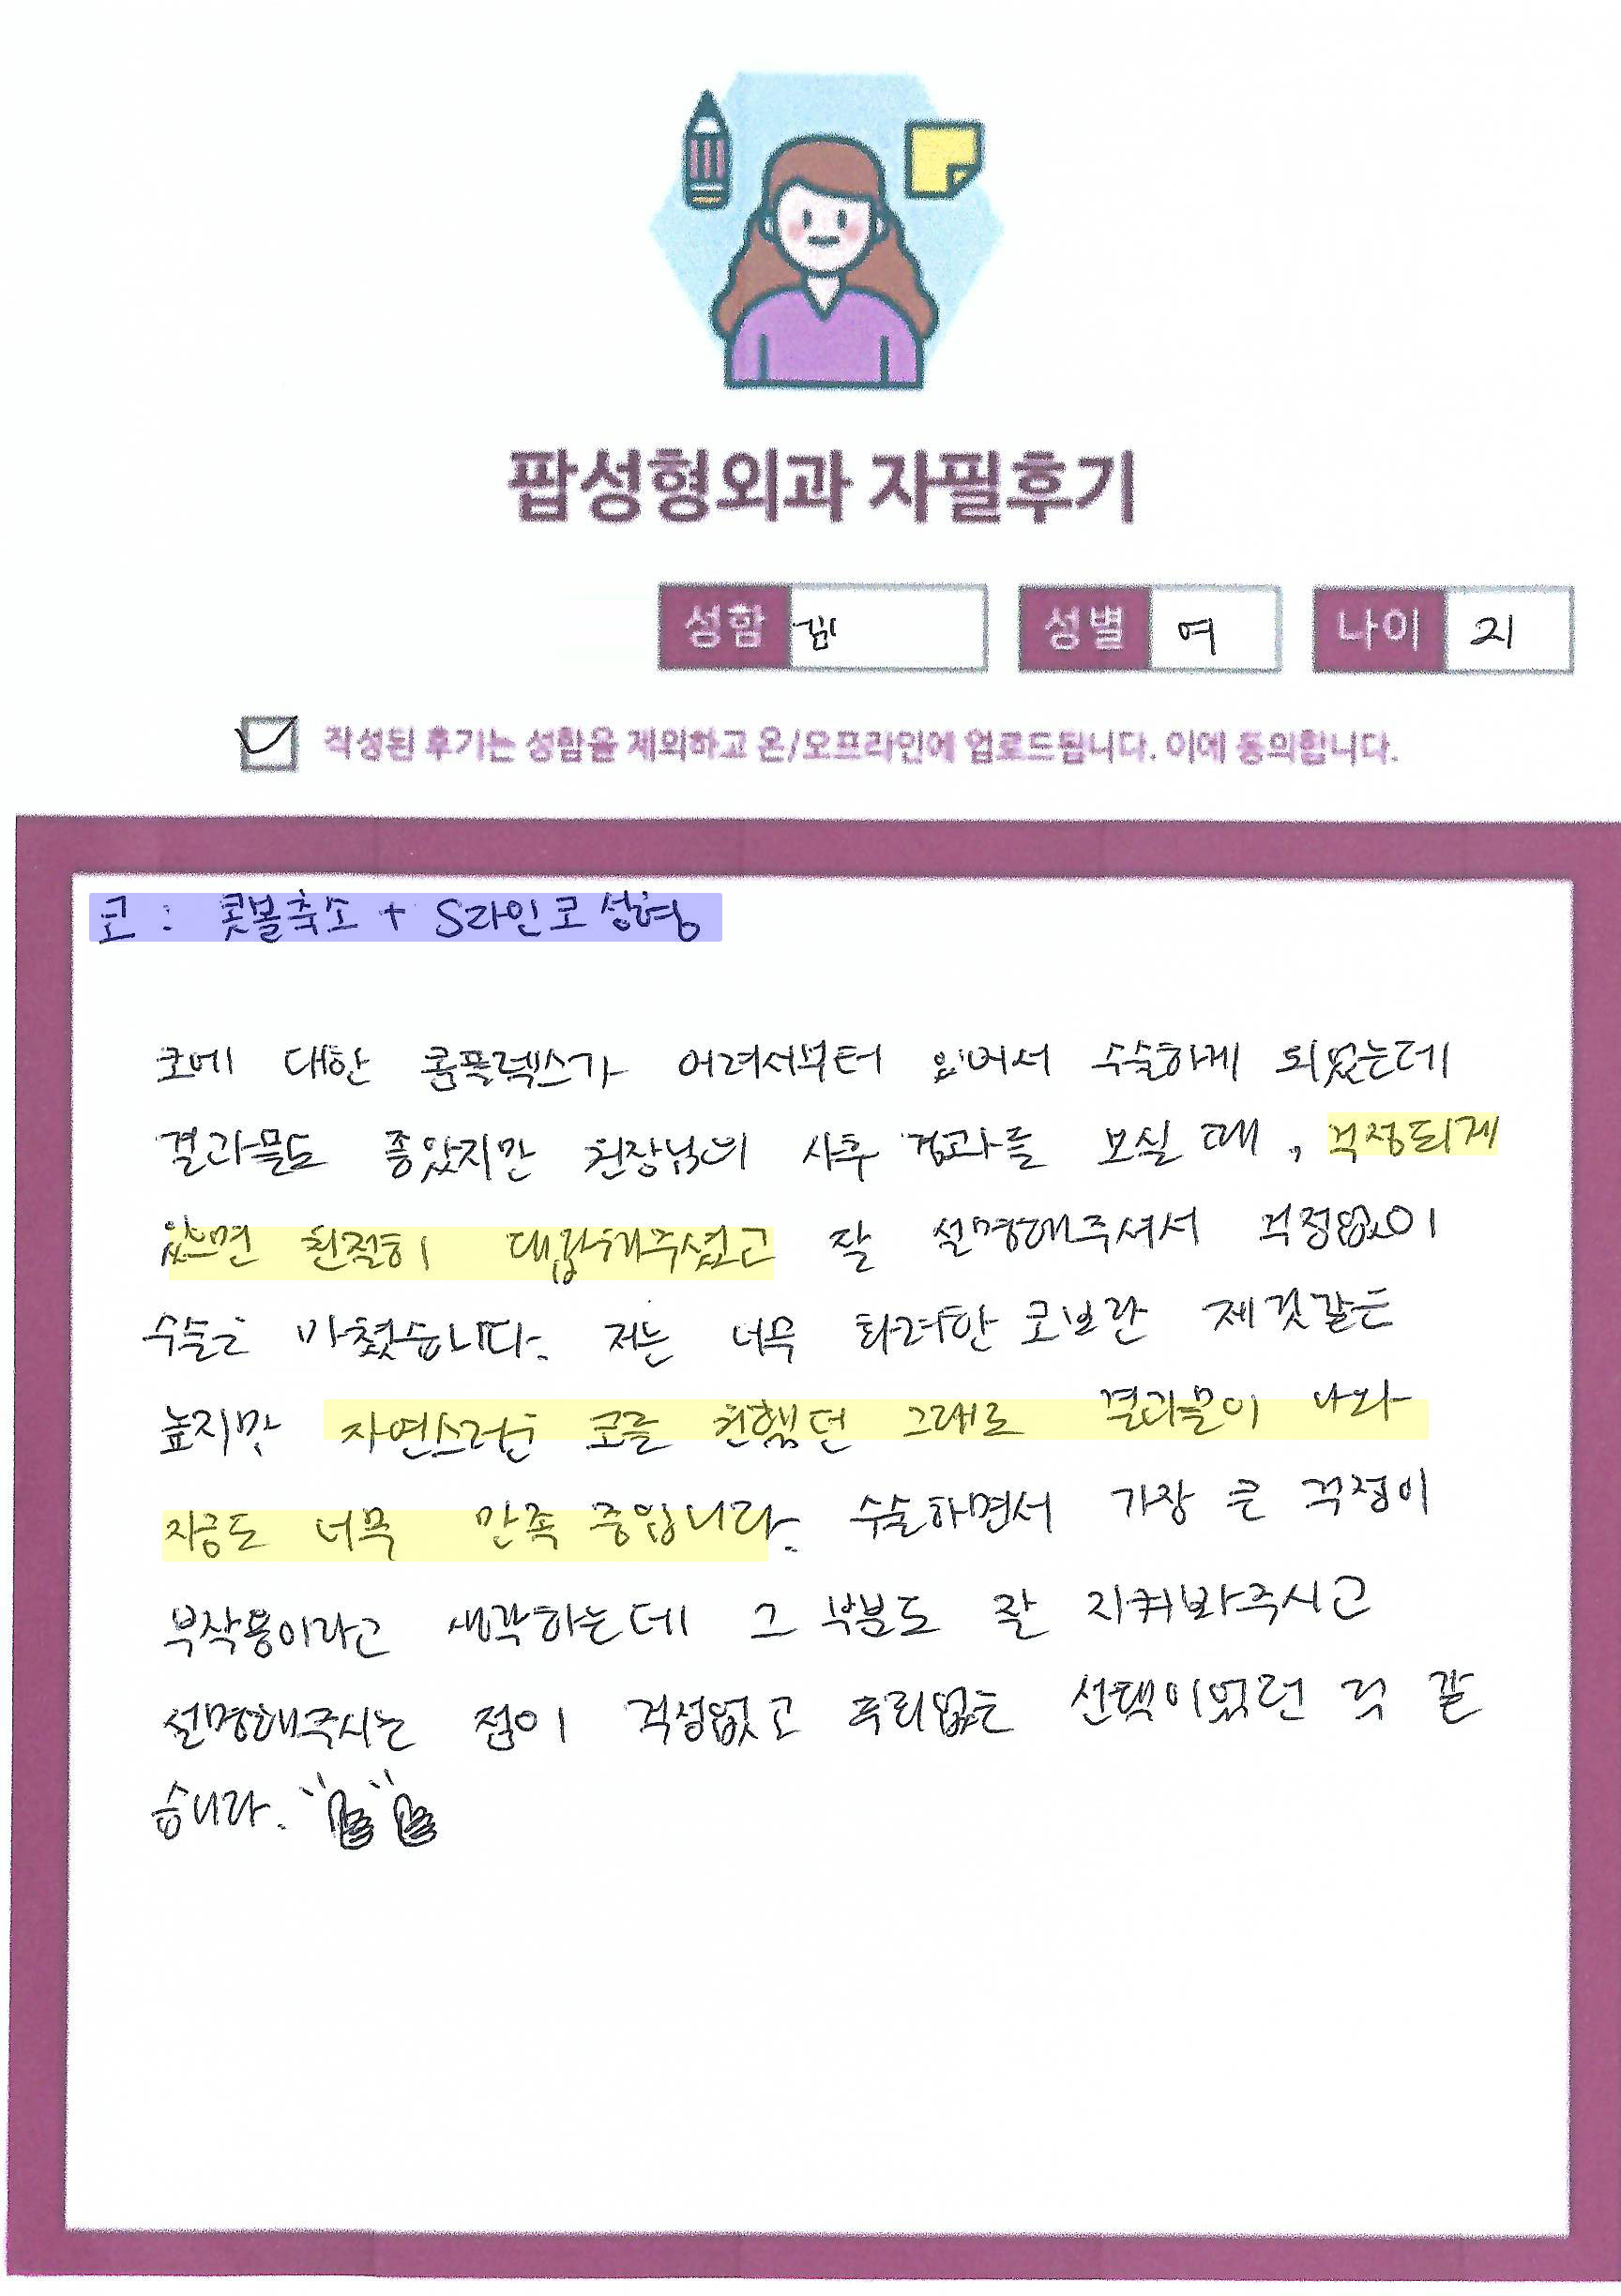 팝성형외과 자필후기
성함 김 성별 여 나이 21
작성된 후기는 성함을 제외하고 온/오프라인에 업로드됩니다. 이에 동의합니다.
코 : 콧볼축소 + S라인코성형
코에 대한 콤플렉스가 어려서부터 있어서 수술하게 되었는데
결과물도 좋았지만 원장님의 사후 경과를 보실 때, 걱정되게
있으면 친절히 대답해주셨고 잘 설명해주셔서 걱정없이
수술은 마쳤습니다. 저는 너무 화려한 코보단 제것같은
높지만 자연스러운 코를 원했던 그대로 결과물이 나와
지금도 너무 만족 중입니다. 수술하면서 가장 큰 걱정이
부작용이라고 생각하는데 그 부분도 잘 지켜봐주시고
설명해주시는 점이 걱정없고 후회없는 선택이었던 것 같
습니다.